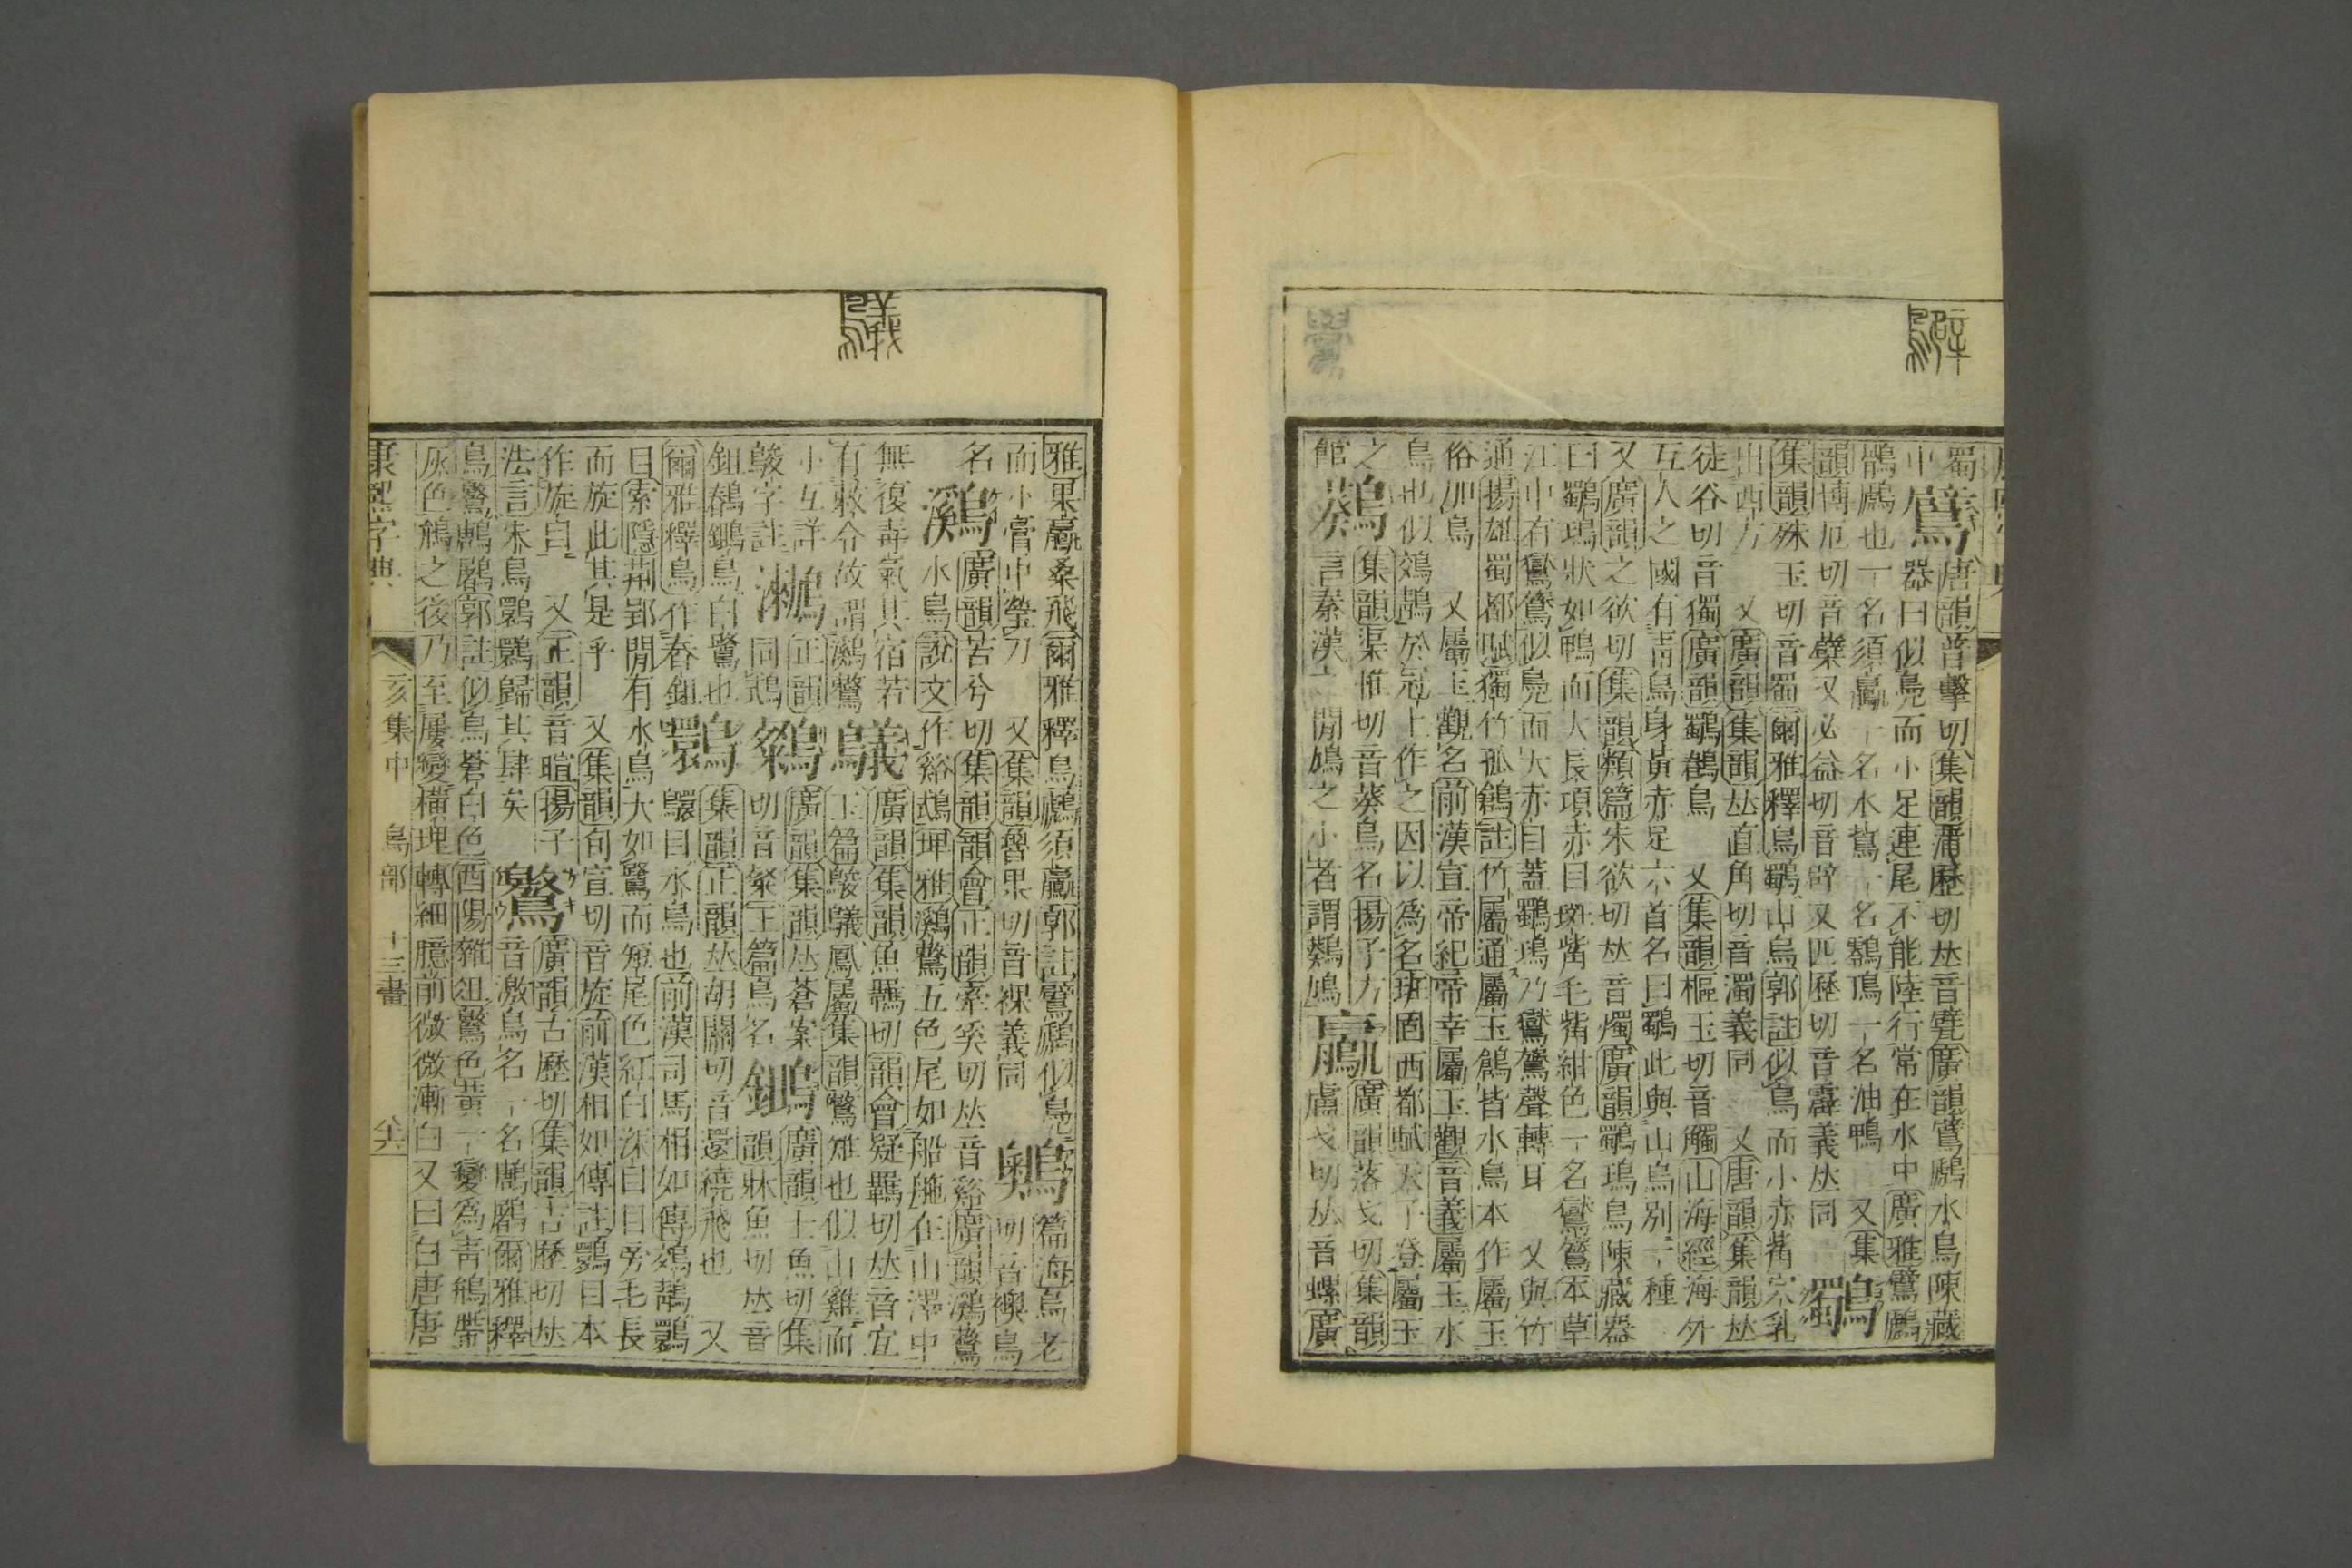 蜀 鷿 唐韻普擊切集韻蒲歷切𠀤音甓廣韻鷿鷉水鳥陳藏
中 器曰似鳧而小足連尾不能陸行常在水中廣雅鷿鷉
鶻鷉也一名須鸁一名水鷔一名鷋鳭一名油鴨 又集
韻博厄切音糪又必益切音辟又匹歷切音霹義𠀤同 鸀
集韻殊玉切音蜀爾雅釋鳥鸀山烏郭註似烏而小赤觜穴乳
出西方 又廣韻集韻𠀤直角切音濁義同 又唐韻集韻𠀤
徒谷切音獨廣韻鸀鶶鳥 又集韻樞玉切音觸山海經海外
互人之國有靑鳥身黃赤足六首名曰鸀此與山烏別一種
又廣韻之欲切集韻類篇朱欲切𠀤音燭廣韻鸀鳿鳥陳藏器
曰鸀鳿狀如鴨而大長項赤目斑觜毛紫紺色一名鸑鷟本草
江中有鸑鷟似鳧而大赤目蓋鸀鳿乃鸑鷟聲轉耳 又與竹
通揚雄蜀都賦獨竹孤鶬註竹屬通屬玉鶬皆水鳥本作屬玉
俗加鳥 又屬玉觀名前漢宣帝紀帝幸屬玉觀音義屬玉水
鳥也似鵁鶄於冠上作之因以爲名班固西都賦天子登屬玉
之 集韻渠惟切音葵鳥名揚子方 鸁 廣韻落戈切集韻
館 言秦漢之閒鳩之小者謂 鳩 盧戈切𠀤音螺廣
鸃
雅果鸁桑飛爾雅釋鳥鷉須鸁郭註鷿鷉似鳧 篇海烏老
而小膏中瑩刀 又集韻魯果切音裸義同 切音襖鳥
名 鸂 廣韻苦兮切集韻韻會正韻牽奚切𠀤音谿廣韻鸂鷘
水鳥說文作谿鵡埤雅鸂鷘五色尾如船柂在山澤中
無復毒氣其宿若 鸃 廣韻集韻魚羈切韻會疑羈切𠀤音宜
有敕令故謂鸂鷘 玉篇鵔鸃鳳屬集韻鷩雉也似山雞而
小互詳 正韻 廣韻集韻𠀤蒼案 廣韻士魚切集
鵔字註 同 切音粲玉篇鳥名 韻牀魚切𠀤音
鉏 鳥白鷺也 集韻正韻𠀤胡關切音還繞飛也 又
爾雅釋鳥作舂鉏 目水鳥也前漢司馬相如傳鵁鶄
目索隱荆郢閒有水鳥大如鷺而短尾色紅白深目目旁毛長
而旋此其是乎 又集韻旬宣切音旋前漢相如傳註 目本
作旋目 又正韻音暄揚子 廣韻古歷切集韻吉歷切𠀤
法言朱鳥 歸其肆矣 音激鳥名一名 爾雅釋
鳥 郭註似烏蒼白色酉陽雜俎 色黃一變爲靑鴘帶
灰色鴘之後乃至屢變橫理轉細臆前微微漸白又曰白唐唐
康熙字典 亥集中 鳥部 十三畫